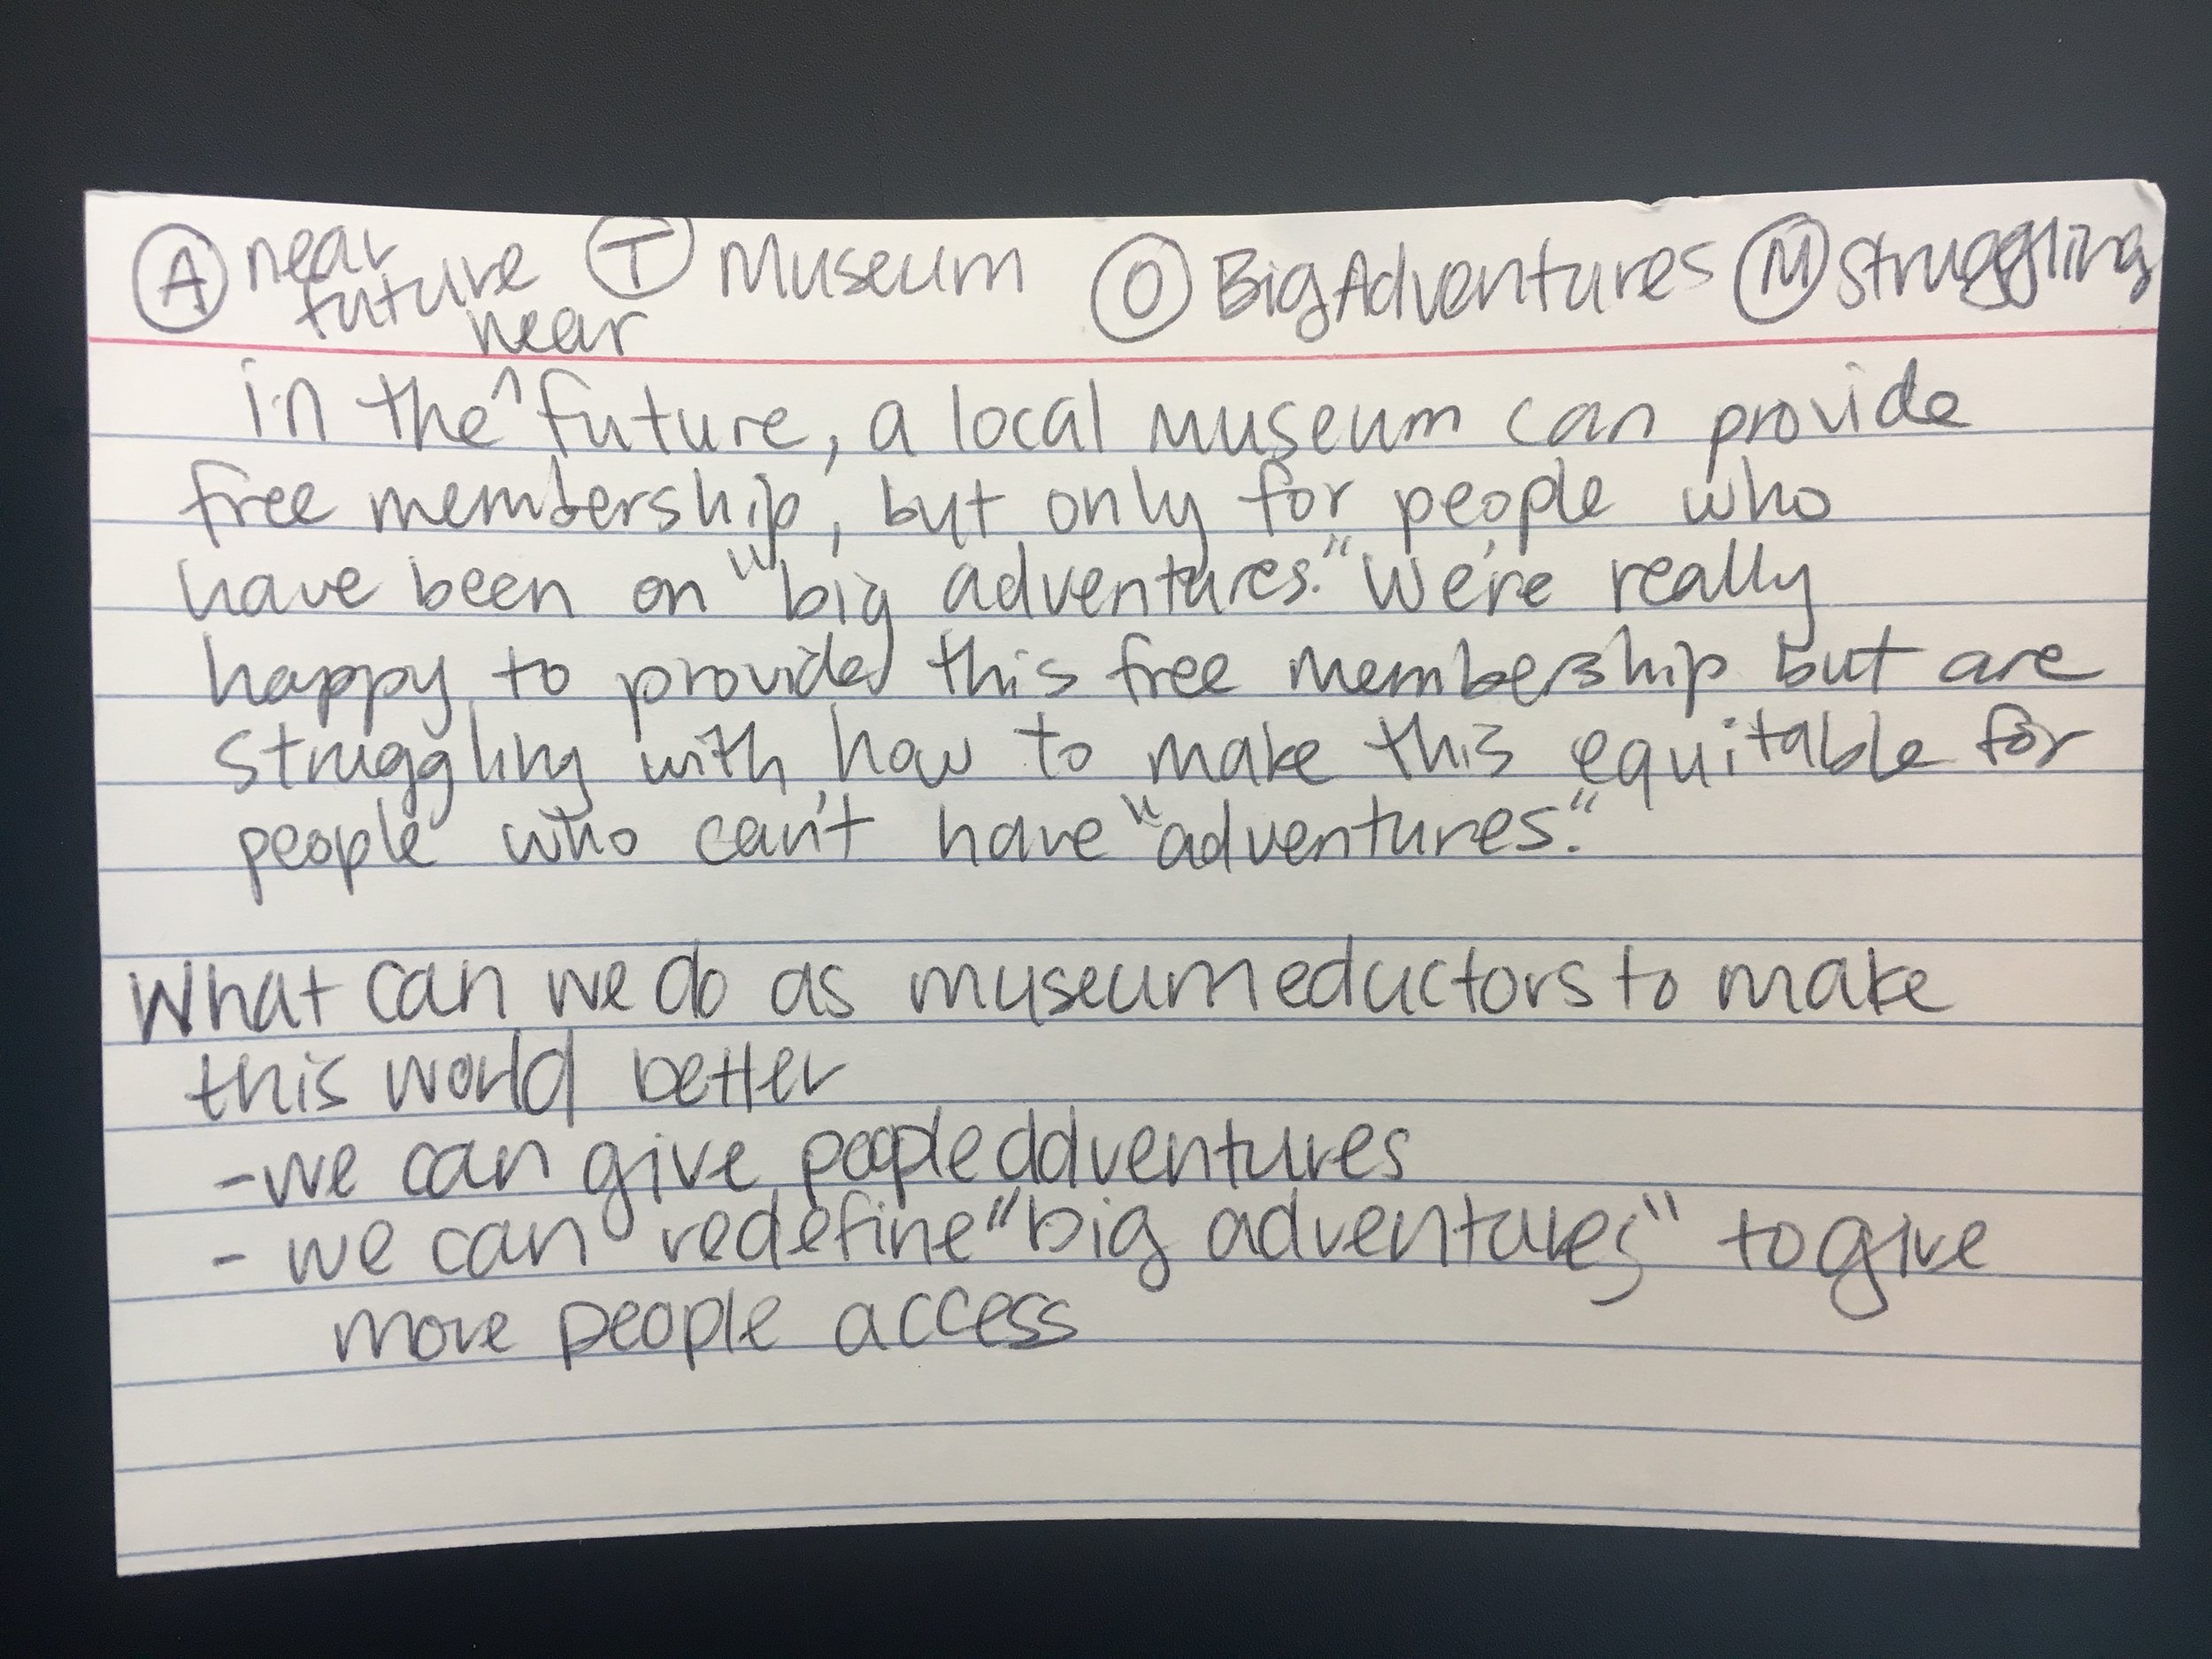 Ⓐ near future Ⓣ Museum Ⓞ Big Adventures Ⓜ struggling
in the ^near future, a local museum can provide
free membership, but only for people who
have been on "big adventures." We're really
happy to provide this free membership but are
struggling with how to make this equitable for
people who can't have "adventures."
What can we do as museum eductors to make
this world better
- we can give people addventures
- we can redefine "big adventures" to give
more people access